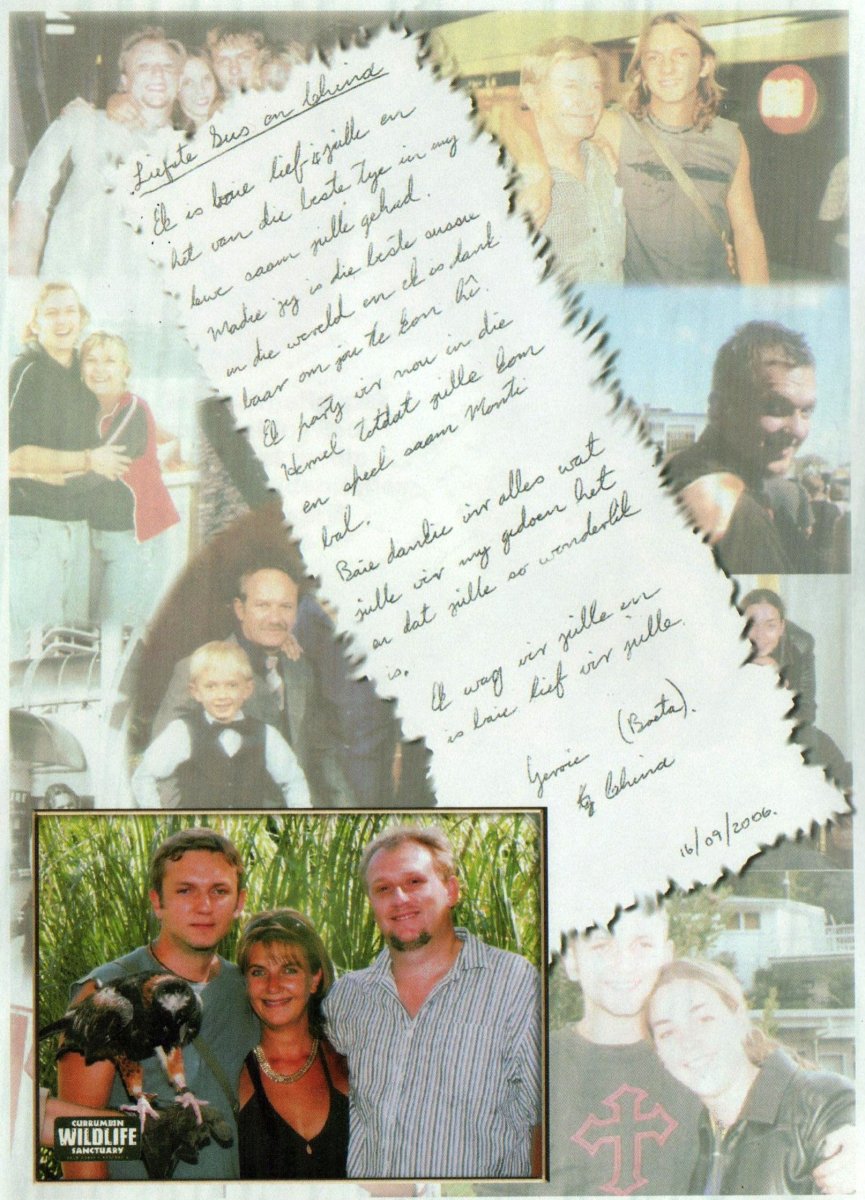 Liefste Sus en Chind
Ek is baie lief jülle en
het van die beste tye in my
lewe saam jülle gehad.
Madie jy is die beste sussie
in die wereld en ek is dank
baar om jou te kon hê.
Ek party vir nou in die
Hemel totdat jülle kom
en speel saam Monti
bal.
Baie dankie vir alles wat
jülle vir my gedoen het
en dat jülle so wonderlik
is.
Ek wag vir jülle en
is baie lief vir jülle.
(Boeta).
Chind
16/09/2006.
CURRUMBIN
WILDLIFE
SANCTUARY